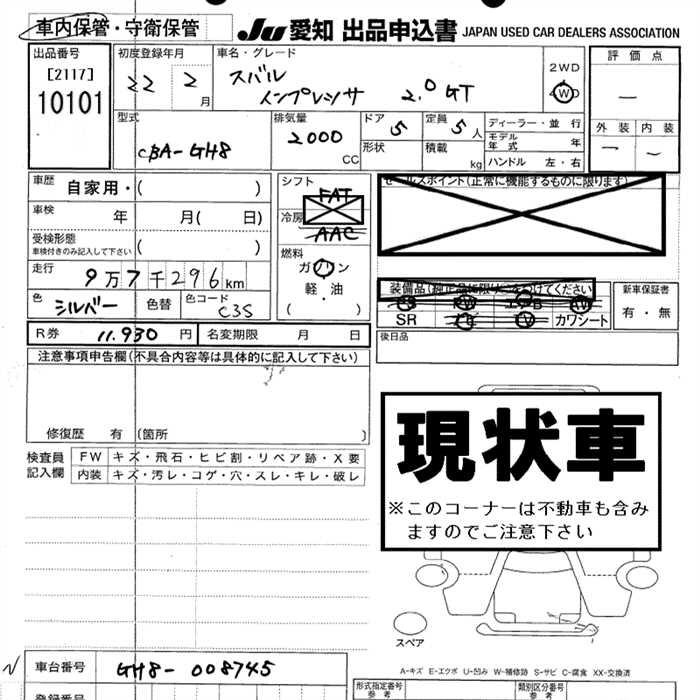 車内保管・守衛保管
JU 愛知 出品申込書 JAPAN USED CAR DEALERS ASSOCIATION
出品番号 [2117] 10101
初度登録年月 22 2月
車名・グレード スバル インプレッサ 2.0GT
2WD 4WD
評価点 —
外装 内装
— —
型式 CBA-GH8
排気量 2000 CC
ドア 5 形状
定員 5人 積載 kg
ディーラー・並行
モデル年式 年
ハンドル 左・右
車歴 自家用・( )
車検 年 月( 日)
受検形態 車検付きのみ記入して下さい ( )
走行 9万7千296km
色 シルバー 色替 色コード C3S
シフト FAT
冷房 AAC
燃料 ガソリン 軽・油 ( )
セールスポイント(正常に機能するものに限ります)
装備品(純正品に限り○をつけてください)
SR PS TV カワシート
新車保証書 有・無
後日品
R券 11,930円 名変期限 月 日
注意事項申告欄(不具合内容等は具体的に記入して下さい)
修復歴 有 (箇所 )
検査員記入欄 FW キズ・飛石・ヒビ割・リペア跡・X要
内装 キズ・汚レ・コゲ・穴・スレ・キレ・破レ
現状車
※このコーナーは不動車も含み
ますのでご注意下さい
スペア
A-キズ E-エクボ U-凹み W-補修跡 S-サビ C-腐食 XX-交換済
車台番号 GH8-008745
登録番号
形式指定番号 参考
類別区分番号 参考